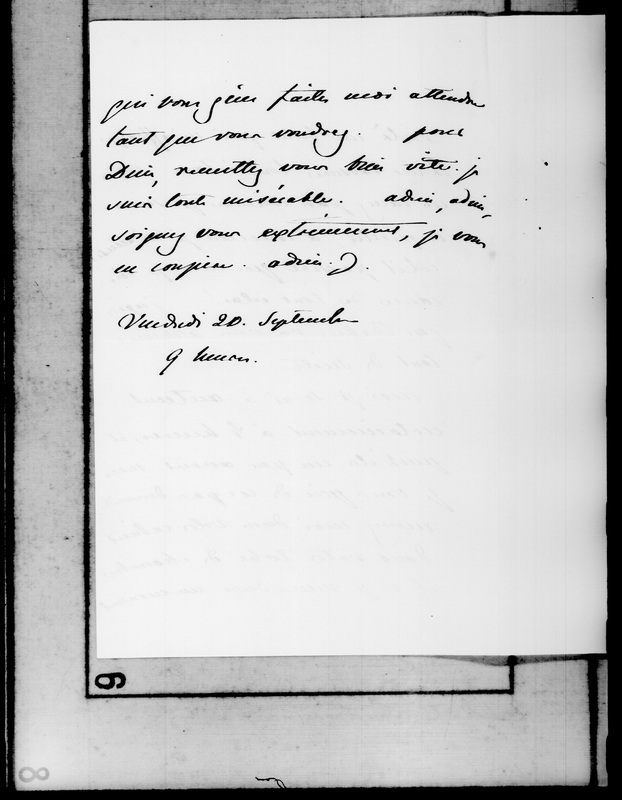 qui vous gêne faites moi attendre
tant que vous voudrez. pour
Dieu, remettez vous bien vite. je
suis toute misérable. adieu, adieu,
soignez vous extrêmement, je vous
en conjure. adieu. D.
Vendredi 20. Septembre
9 heures.
9
8